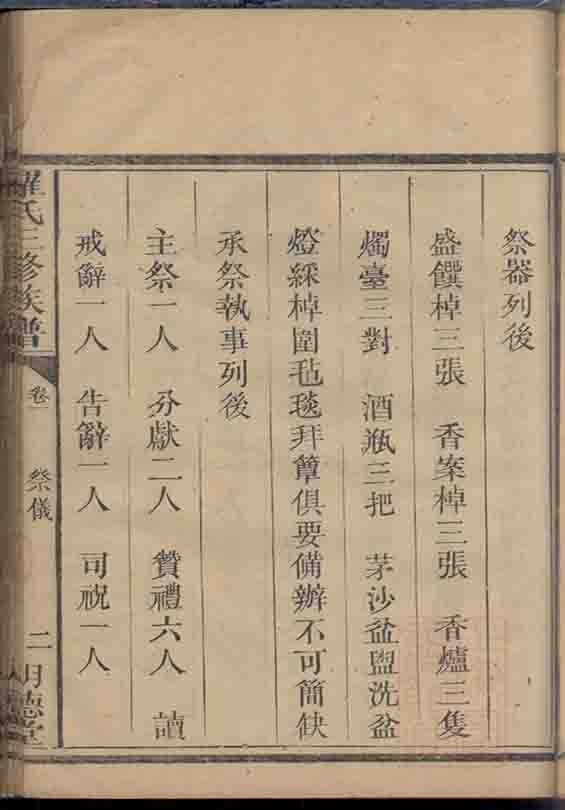 祭器列後
盛饌棹三張　香案棹三張　香爐三隻
燭臺三對　酒瓶三把　茅沙盆盥洗盆
燈綵棹圍毡毯拜簟俱要備辦不可簡缺
承祭執事列後
主祭一人　分獻二人　贊禮六人　讀
戒辭一人　告辭一人　司祝一人
羅氏三修族譜
卷一　祭儀
二　明德堂